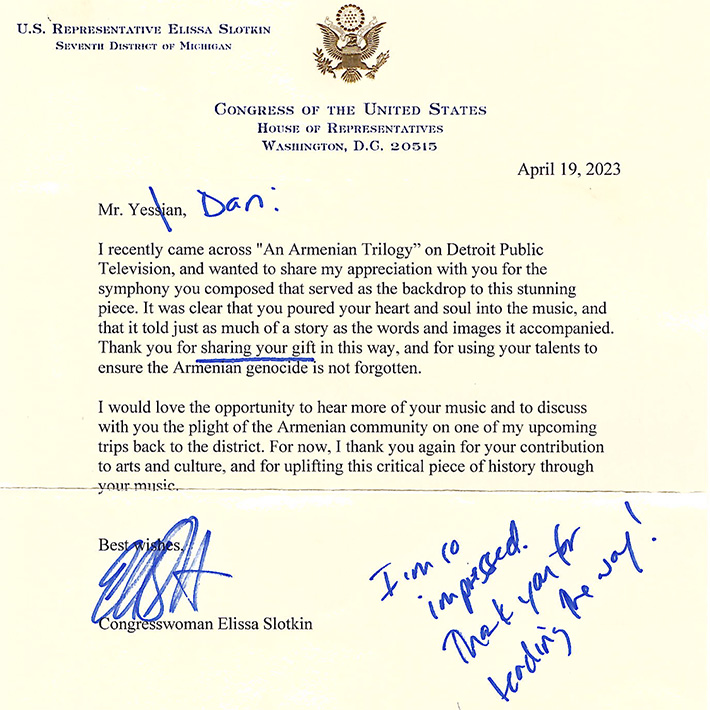 U.S. Representative Elissa Slotkin
Seventh District of Michigan
Congress of the United States
House of Representatives
Washington, D.C. 20515
April 19, 2023
Mr. Yessian, Dan:
I recently came across "An Armenian Trilogy” on Detroit Public
Television, and wanted to share my appreciation with you for the
symphony you composed that served as the backdrop to this stunning
piece. It was clear that you poured your heart and soul into the music, and
that it told just as much of a story as the words and images it accompanied.
Thank you for sharing your gift in this way, and for using your talents to
ensure the Armenian genocide is not forgotten.
I would love the opportunity to hear more of your music and to discuss
with you the plight of the Armenian community on one of my upcoming
trips back to the district. For now, I thank you again for your contribution
to arts and culture, and for uplifting this critical piece of history through
your music.
Best wishes,
Congresswoman Elissa Slotkin
I'm so
impressed.
Thank you for
leading the way!